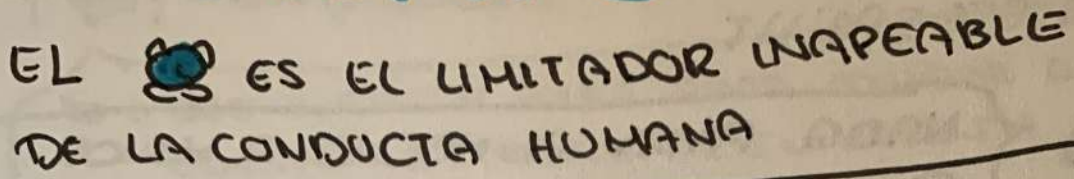 EL ES EL LIMITADOR INAPEABLE
DE LA CONDUCTA HUMANA